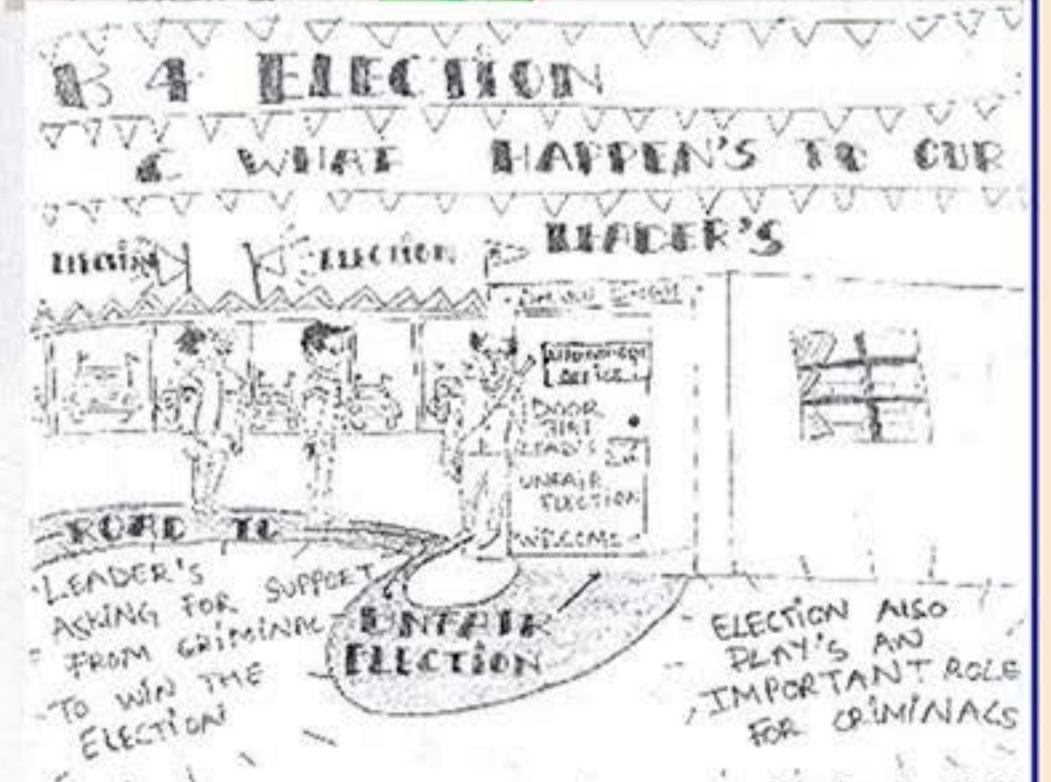 B 4 ELECTION
WHAT HAPPEN'S TO OUR
LEADER'S
ELECTION
OFFICE
DOOR
THAT
LEAD'S TO
UNFAIR
ELECTION
WELCOME
ROAD TO
UNFAIR
ELECTION
LEADER'S
ASKING FOR SUPPORT
FROM CRIMINAL
TO WIN THE
ELECTION
ELECTION ALSO
PLAY'S AN
IMPORTANT ROLE
FOR CRIMINALS